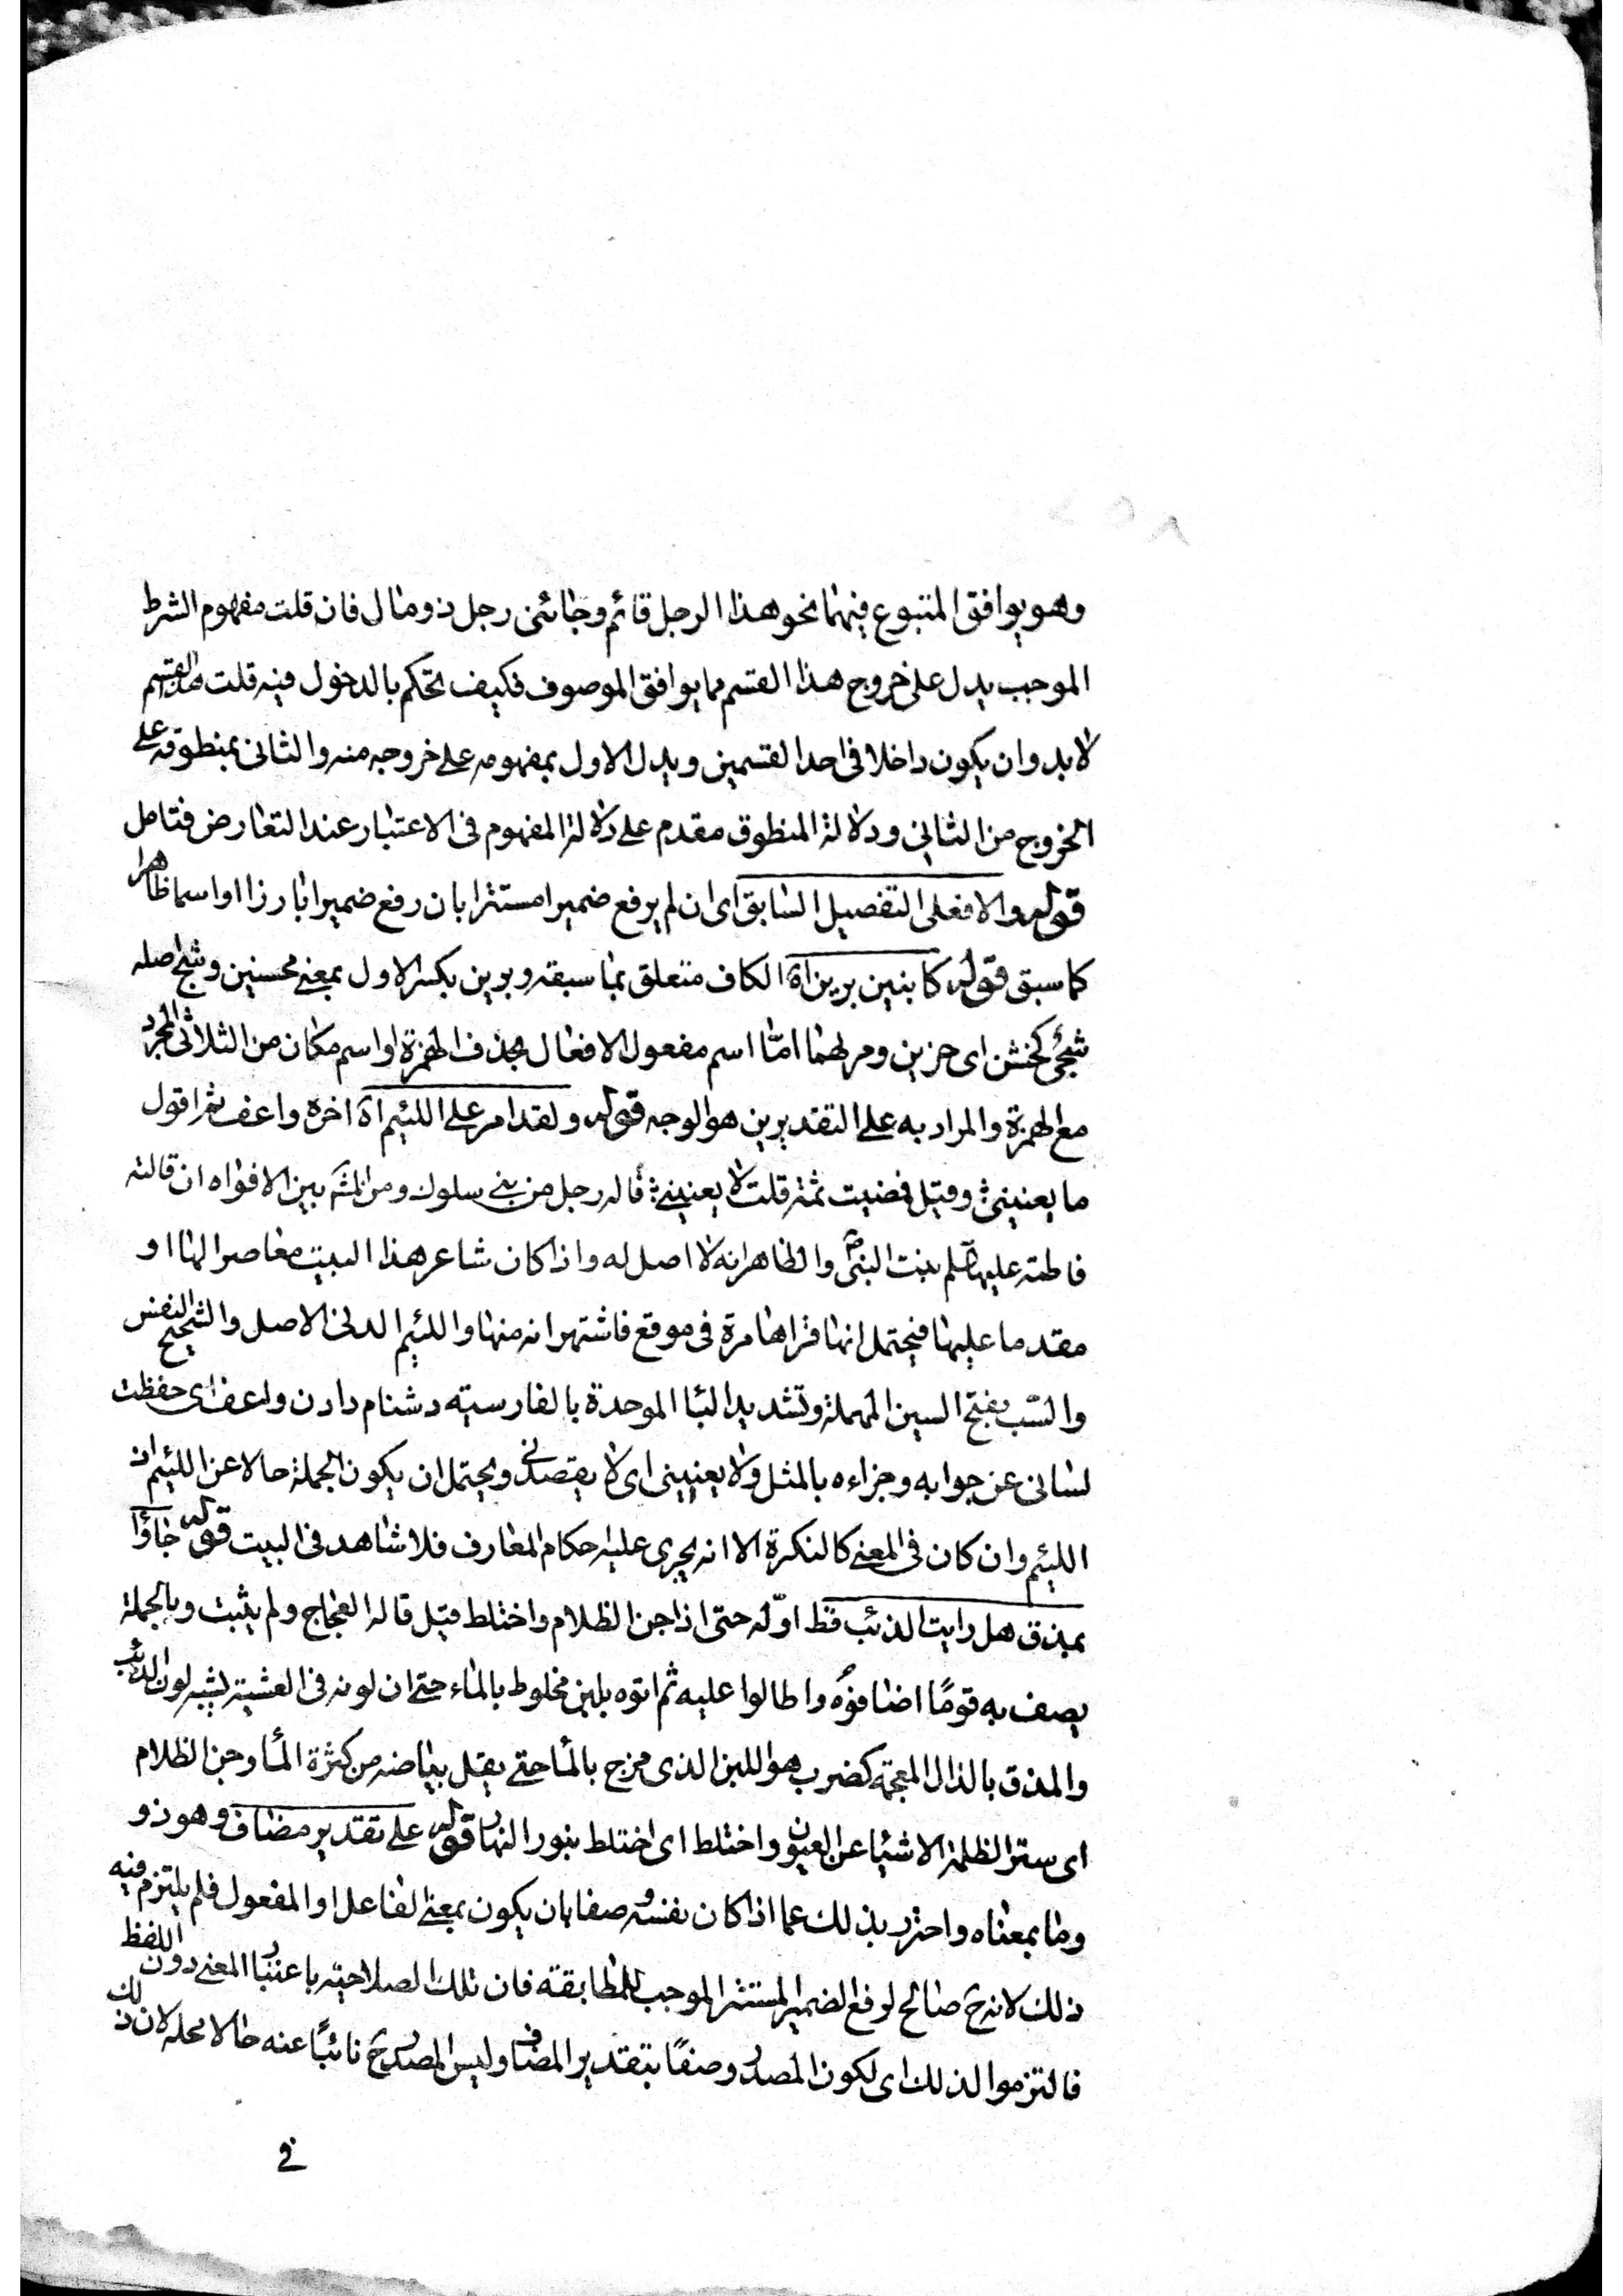 ٢٥٨
وهو يوافق المتبوع فيهما نحو هذا الرجل قائم وجائنى رجل ذو مال فان قلت مفهوم الشرط
الموجب يدل على خروج هذا القسم مما يوافق الموصوف فكيف تحكم بالدخول فيه قلت هذا القسم
لا بد وان يكون داخلا فى احد القسمين ويدل الاول بمفهومه على خروجه منه والثانى بمنطوقه على
الخروج من الثانى ودلالة المنطوق مقدم على دلالة المفهوم فى الاعتبار عند التعارض فتامل
قوله والا فعلى التفصيل السابق اى ان لم يرفع ضميرا مستترا بان رفع ضميرا بارزا او اسما ظاهرا
كما سبق قوله كابنين برين اة الكاف متعلق بما سبقه وبرين بكسر الاول بمعنى محسنين وشج اصله
شجئ كخشن اى حزين ومر لهما امّا اسم مفعول الافعال بحذف الهمزة او اسم مكان من الثلاثى المجرد
مع الهمزة والمراد به على التقديرين هو الوجه قوله ولقد امر على اللئيم اة اخره واعف ثم اقول
ما يعنينى وقيل فمضيت ثمة قلت لا يعنينى قاله رجل من بنى سلول ومن المشه بين الافواه ان قالته
فاطمة عليها السلم بنت النبى ص والظاهر انه لا اصل له واذا كان شاعر هذا البيت معاصرا لها او
مقدما عليها فيحتمل انها قراها مرة فى موقع فاشتهر انه منها واللئيم الدنى الاصل والشحيح النفس
والسّب بفتح السين المهملة وتشديد البا الموحدة بالفارسيته دشنام دادن واعف اى حفظت
لسانى عن جوابه وجزاءه بالمثل ولا يعنينى اى لا يقصدنى ويحتمل ان يكون الجملة حالا عن اللئيم اذ
اللئيم وان كان فى المعنى كالنكرة الا انه يجرى عليه احكام المعارف فلا شاهد فى البيت قوله جاؤا
بمذق هل رايت الذئب قط اوّله حتى اذا جن الظلام واختلط قيل قاله العجاج ولم يثبت وبالجملة
يصف به قومًا اضافوه واطالوا عليه ثم اتوه بلبن مخلوط بالماء حتى ان لونه فى العشية يشبه لون الذئب
والمذق بالذال المعجمة كضرب هو اللبن الذى مزج بالمأ حتى يقل بياضه من كثرة المأ وجن الظلام
اى ستر الظلمة الاشيا عن العيون واختلط اى اختلط بنور النهار قوله على تقدير مضاف وهو ذو
وما بمعناه واحترز بذلك عما اذا كان نفسه وصفا بان يكون بمعنى الفاعل او المفعول فلم يلتزم فيه
ذلك لانه ح صالح لرفع الضمير المستتر الموجب للمطابقة فان تلك الصلاحية باعتبار المعنى دون اللفظ
فالتزموا لذلك اى لكون المصدر وصفًا بتقدير المضاف وليس المصدر ح نائبًا عنه حالا محله لان ذلك
فى